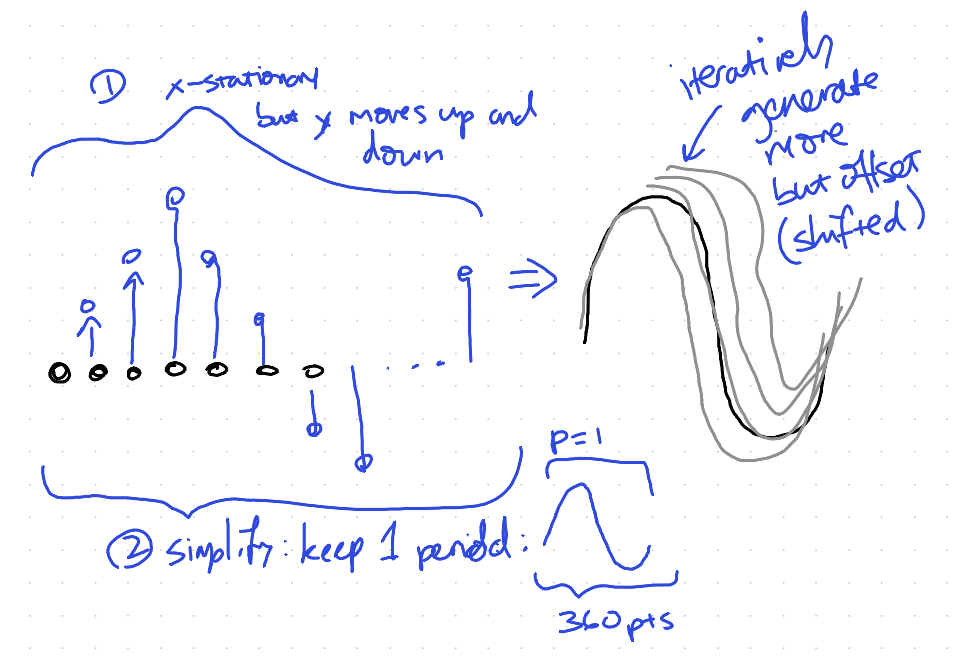 ① x-stationary
but y moves up and
down
iteratively
generate
more
but offset
(shifted)
P=1
② simplify: keep 1 period:
360 pts